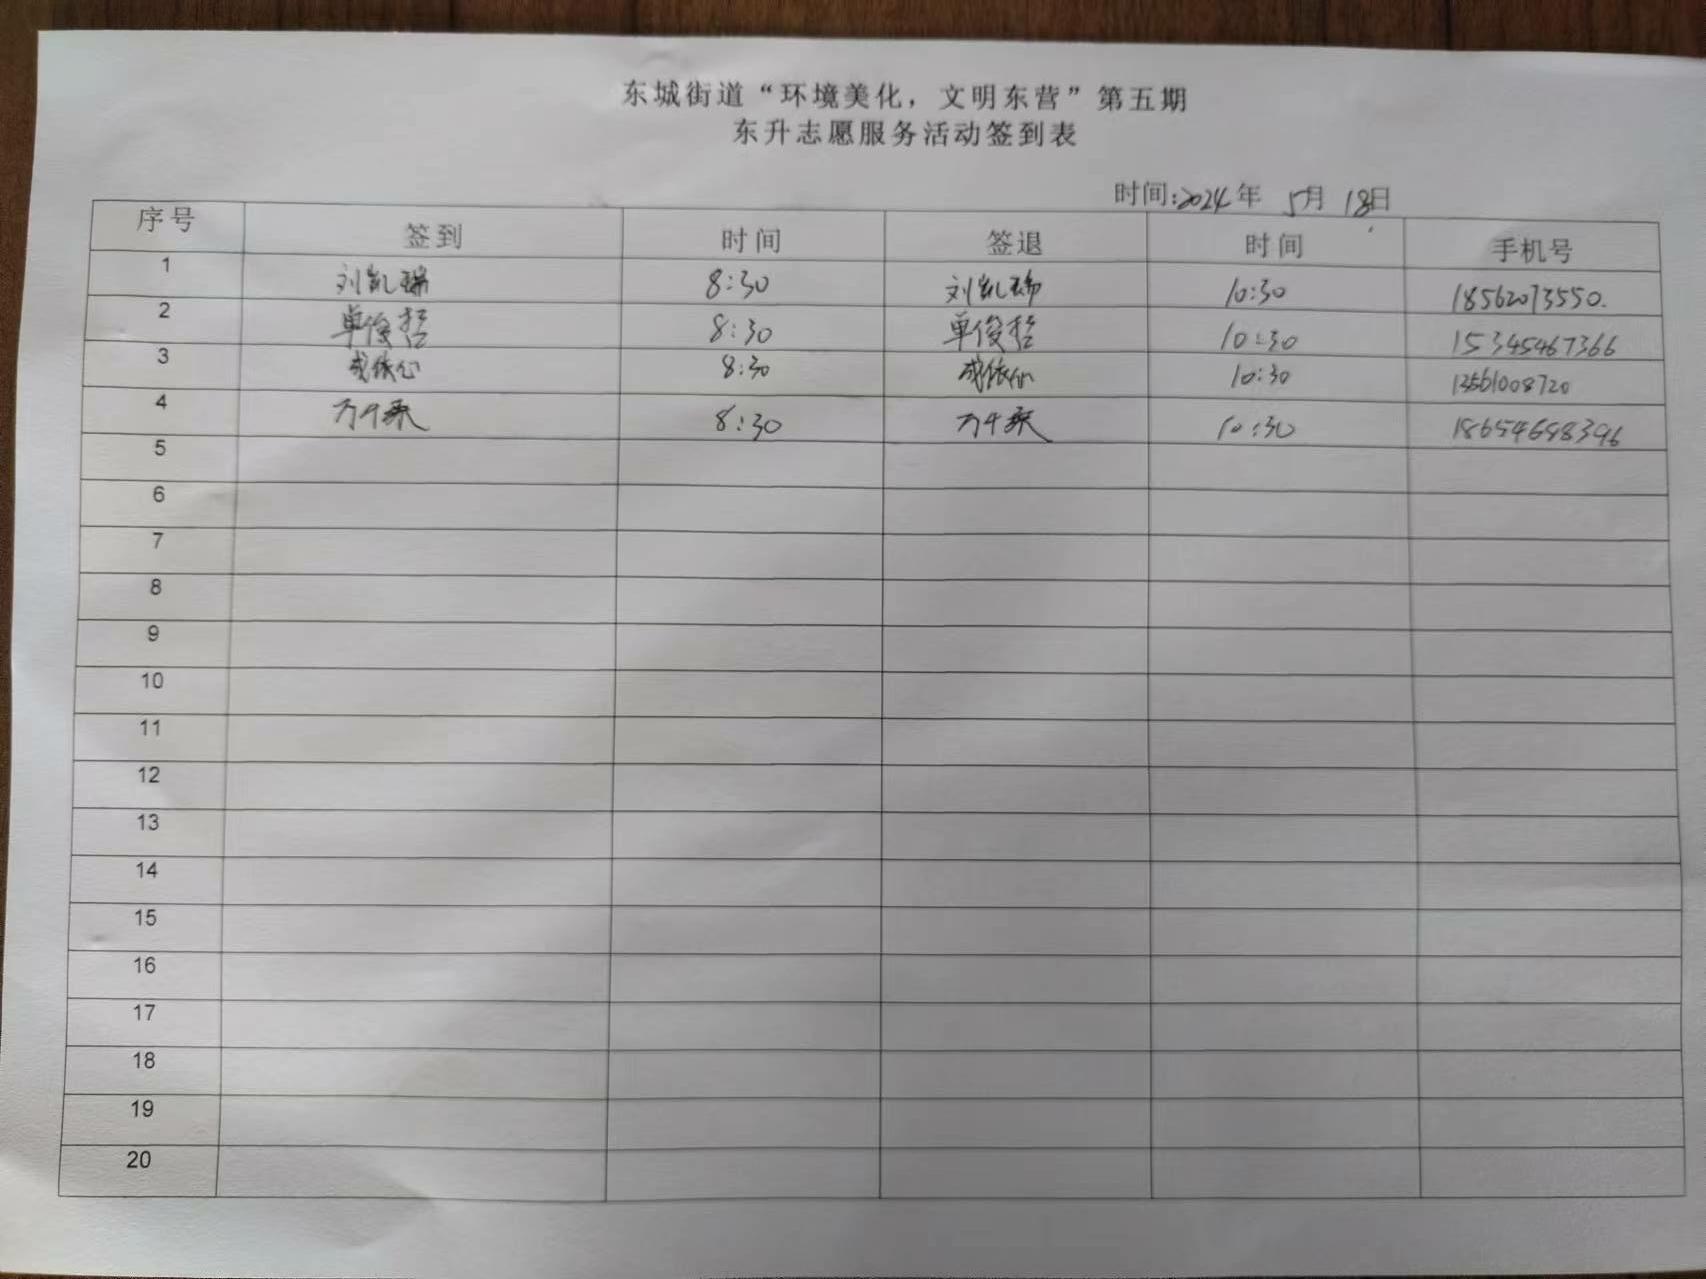 东城街道“环境美化，文明东营”第五期
东升志愿服务活动签到表
时间:2024年 5月 18日
序号 签到 时间 签退 时间 手机号
1 刘凯瑞 8:30 刘凯瑞 10:30 18562073550.
2 单俊哲 8:30 单俊哲 10:30 15345467366
3 8:30 10:30 13561008720
4 万千乘 8:30 万千乘 10:30 18654698396
5
6
7
8
9
10
11
12
13
14
15
16
17
18
19
20